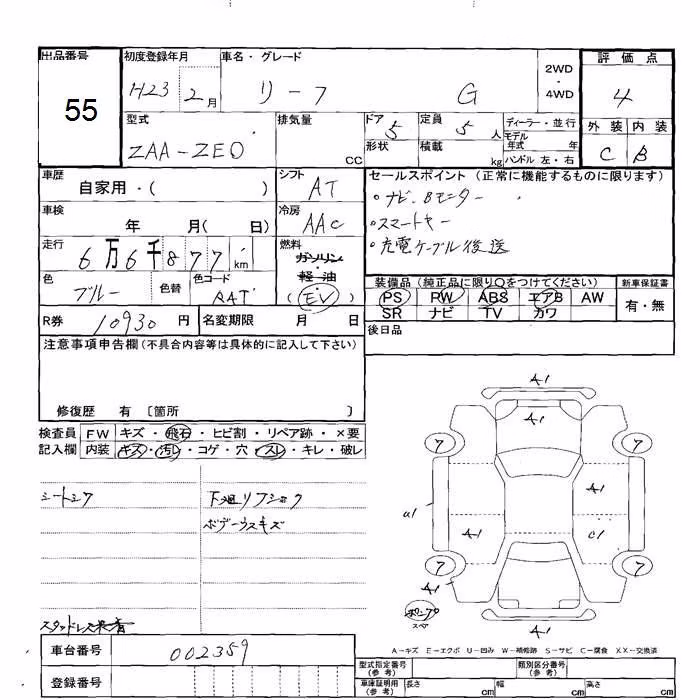 出品番号 初度登録年月 車名・グレード 評価点
55 H23 2月 リーフ G 2WD・4WD 4
型式 排気量 ドア 定員 ディーラー・並行 外装 内装
ZAA-ZE0 cc 5 5人 モデル年式 年 C B
形状 積載 kg ハンドル 左・右
車歴 シフト セールスポイント(正常に機能するものに限ります)
自家用・( ) AT 。ナビ、Bモニター
車検 冷房 。スマートキー
年 月( 日) AAC 。充電ケーブル後送
走行 燃料
6万6千877km ガソリン・軽油
色 色替 色コード 装備品(純正品に限り○をつけてください) 新車保証書
ブルー RAT (EV) PS PW ABS エアB AW 有・無
SR ナビ TV カワ
R券 10930円 名変期限 月 日 後日品
注意事項申告欄(不具合内容等は具体的に記入して下さい)
修復歴 有〔箇所 〕
検査員記入欄 FW キズ・飛石・ヒビ割・リペア跡・×要
内装 キズ・汚レ・コゲ・穴・スレ・キレ・破レ
A1
A1
7 7
A1
a1 A1 C1
7 7
A1
A1
シートシワ 下廻リフショク
ボデーウスキズ
スタッドレス装着
スペア
A-キズ E-エクボ U-凹み W-補修跡 S-サビ C-腐食 XX-交換済
車台番号 002359 型式指定番号(参考) 類別区分番号(参考)
登録番号 車庫証明用(参考) 長さ cm 幅 cm 高さ cm